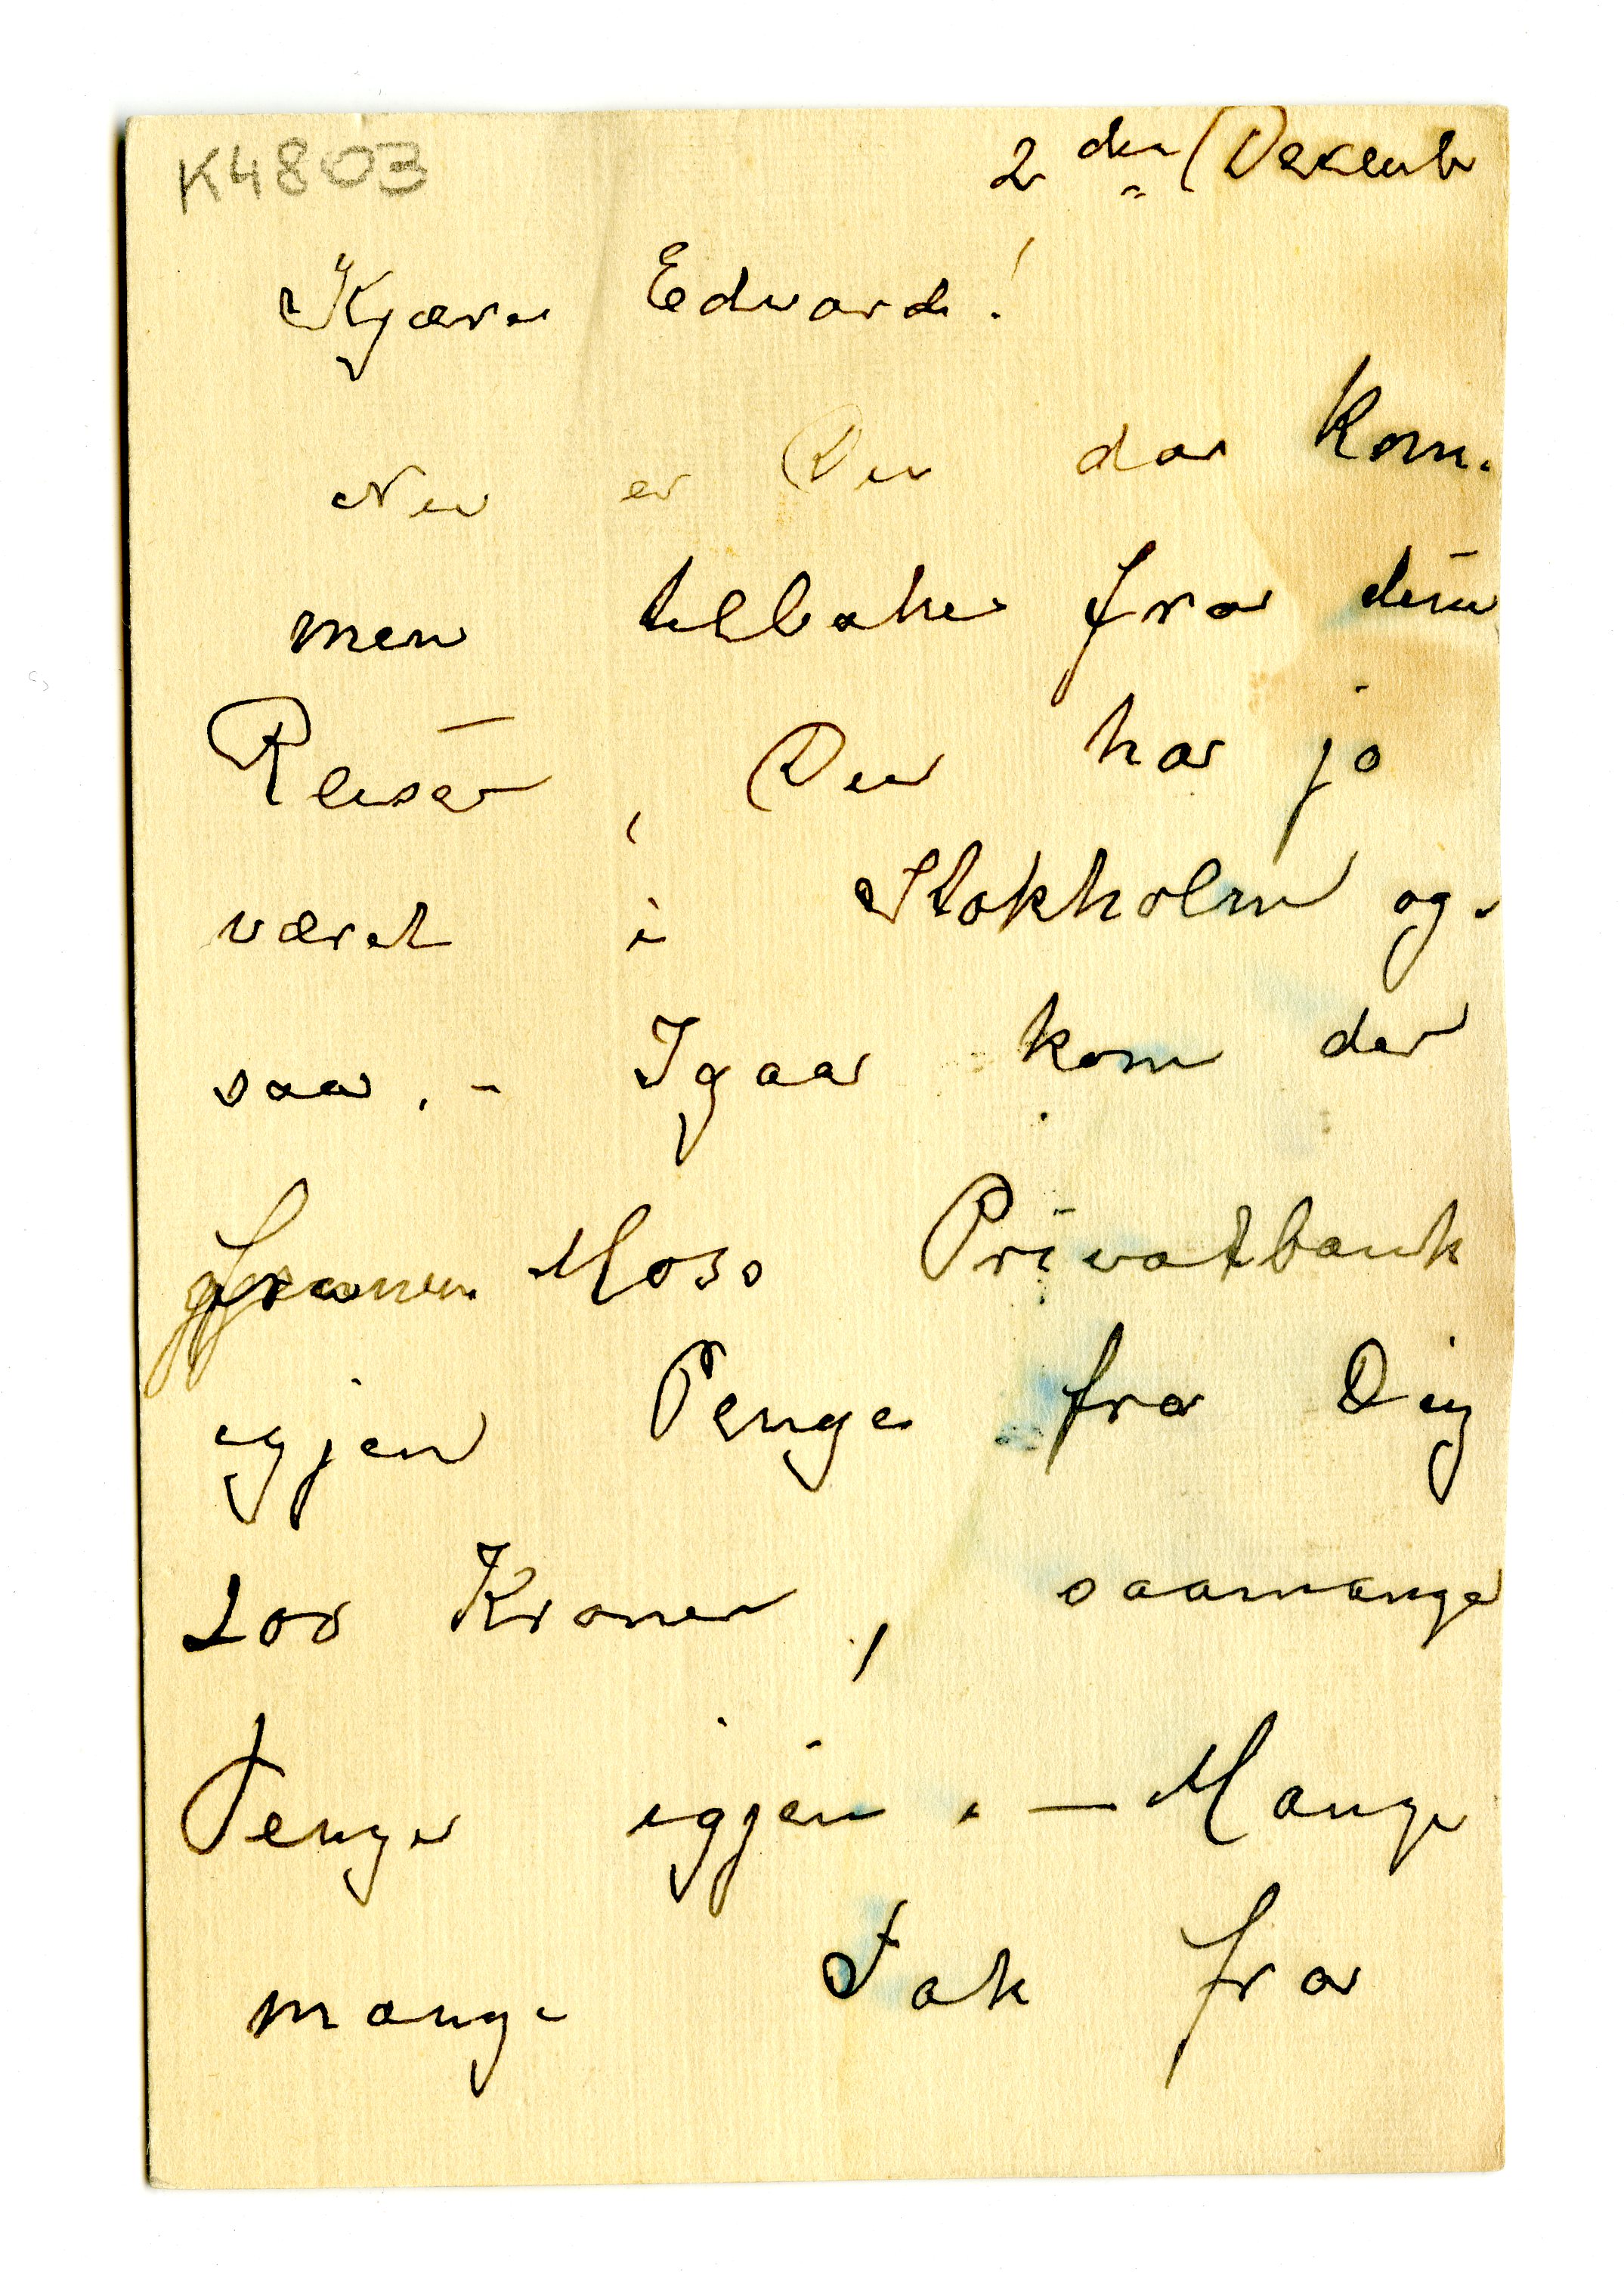 K4803
2den Dexemb
Kjære Edvard!
Nu er Du da kom-
men tilbake fra din
Reise, Du har ja
været i Stokholm og-
saa. - Igaar kom der
Moss Privatbank
igjen Penge fra Dig
200 Kroner, saamange
Penge igjen. — Mange
mange Tak fra